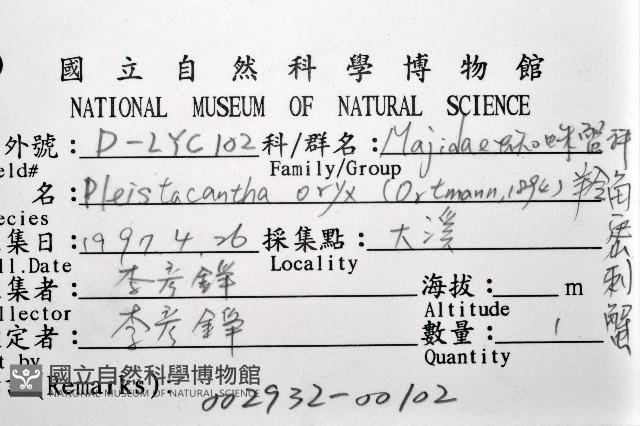 國立自然科學博物館
NATIONAL MUSEUM OF NATURAL SCIENCE
外號: D-LYC102 科/群名: Majidae 蜘蛛蟹科
eld# Family/Group
名: Pleistacantha oryx (Ortmann, 1894) 羚角密刺蟹
ecies
集日: 1997.4.26 採集點: 大溪
ll.Date Locality
集者: 李彥錚 海拔: m
llector Altitude
定者: 李彥錚 數量: 1
t by Quantity
(Remarks):
國立自然科學博物館
NATIONAL MUSEUM OF NATURAL SCIENCE
002932-00102